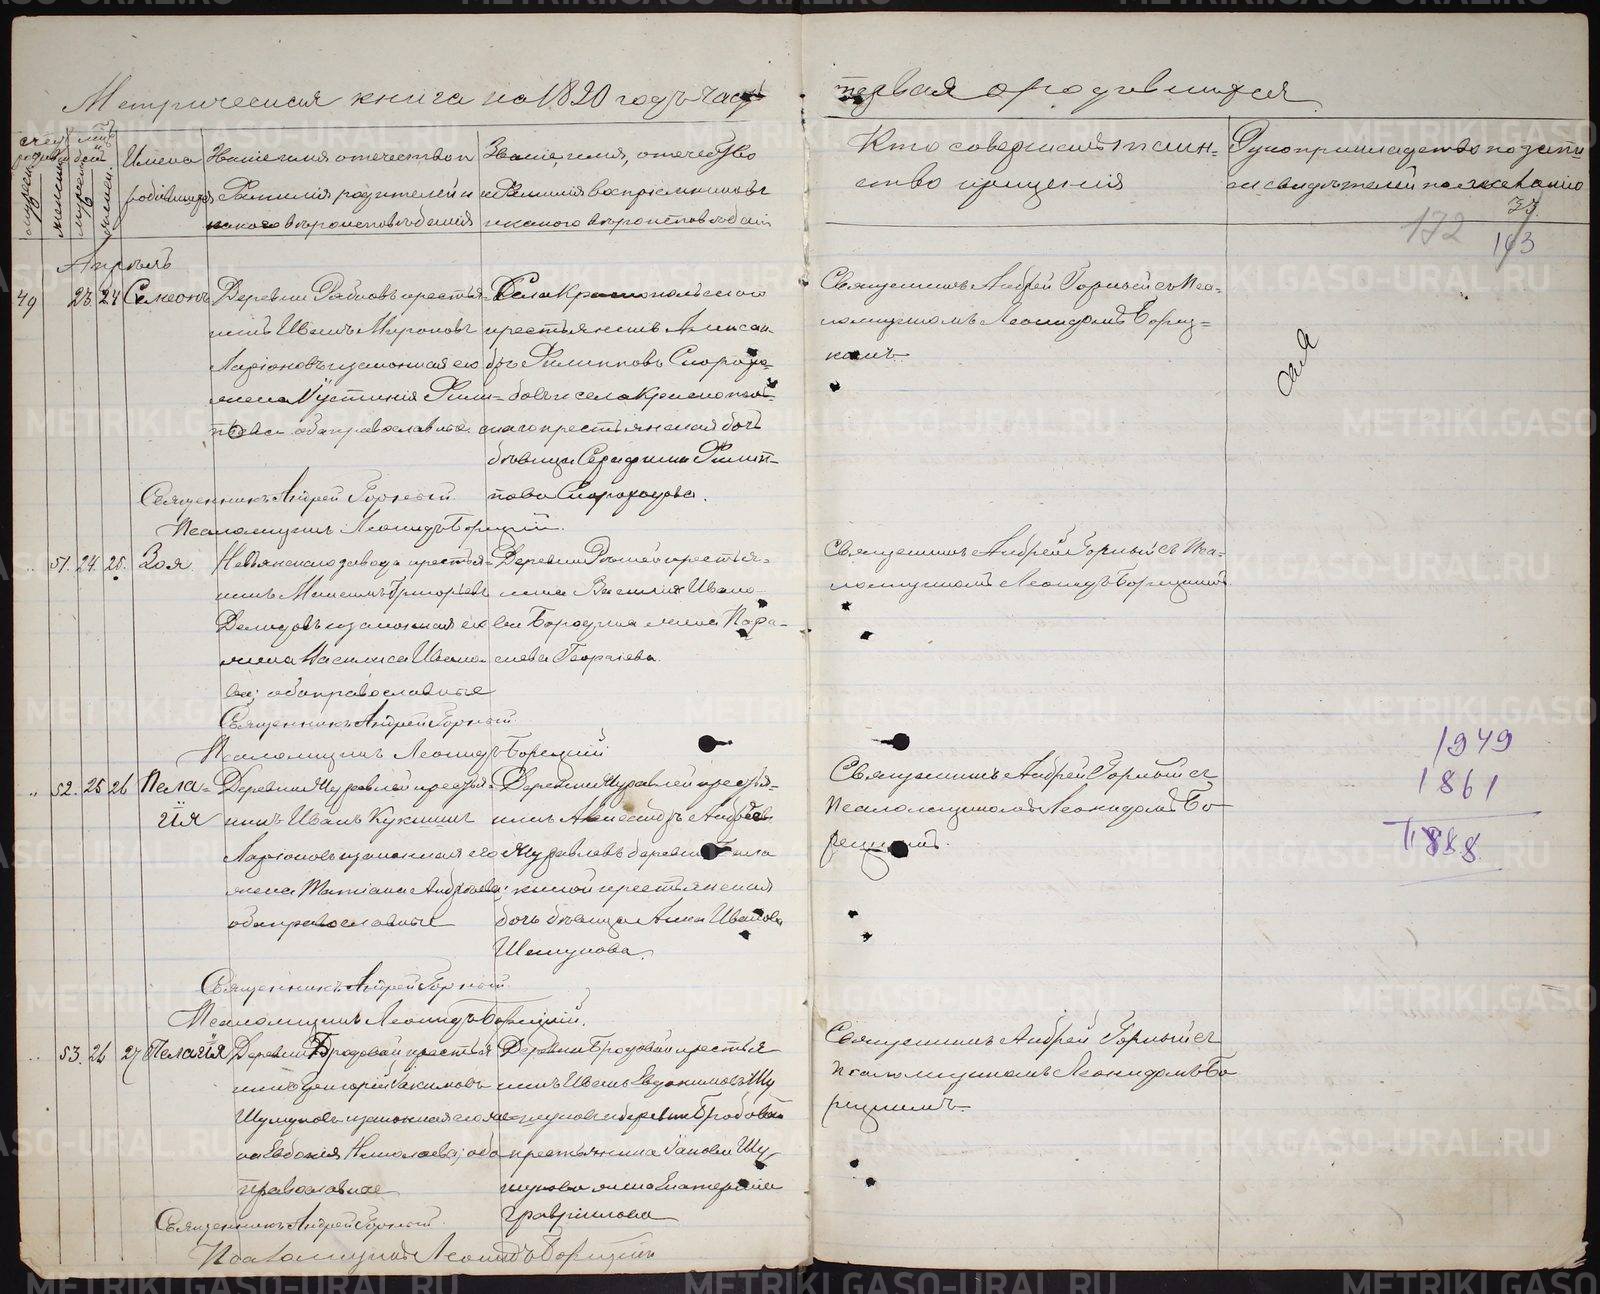 Метрическая книга на 1820 годъ часть
первая о родившихся
Имена родившихся
Званіе, имя, отечество и фамилія родителей и какого вѣроисповѣданія
Званіе, имя, отечество и фамилія воспріемниковъ и какого вѣроисповѣданія
Кто совершалъ таинство крещенія
Рукоприкладство свидѣтелей по желанію
172
193
Апрѣль
49 23 24 Симеонъ
Деревни крестья-
нинъ Иванъ Мироновъ
Ларіоновъ и законная его
жена Устинія Филип-
пова оба православные
Села Краснопольскаго
крестьянинъ Алексан-
дръ Филипповъ Скорохо-
довъ и села Краснополь-
скаго крестьянская дочь
дѣвица Серафима Филип-
пова Скороходова.
Священникъ Андрей Горный
Псаломщикъ Леонидъ Борецкій.
Священникъ Андрей Горный съ Пса-
ломщикомъ Леонидомъ Борец-
кимъ
51. 24. 25. Зоя
Невьянскаго завода крестья-
нинъ Максимъ Григорьевъ
Демидовъ и законная его
жена Василиса Ивано-
ва; оба православные
Деревни крестья-
нина Василія Ивано-
ва Бородина жена Пара-
скева Георгіева.
Священникъ Андрей Горный
Псаломщикъ Леонидъ Борецкій
Священникъ Андрей Горный съ Пса-
ломщикомъ Леонидъ Борецкимъ
52. 25 26 Пела-
гія
Деревни Журавлей крестья-
нинъ Иванъ
Ларіоновъ и законная его
жена Татіана Андреева;
оба православные
Деревни Журавлей крестья-
нинъ Александръ Андреевъ
Журавлевъ деревни
крестьянская
дочь дѣвица Анна Иванова
Шемунова.
Священникъ Андрей Горный
Псаломщикъ Леонидъ Борецкій.
Священникъ Андрей Горный съ
Псаломщикомъ Леонидомъ Бо-
рецкимъ.
1949
1861
1888
53. 26 27 Пелагія
Деревни Бродовой крестья
нинъ Григорій Іакимовъ
и законная его же-
на Евдокія Николаева; оба
православные
Деревни Бродовой крестья
нинъ Иванъ Евдокимовъ Шу
деревни Бродовой
крестьянина Іакова Шу
жена Екатерина
Гавриилова
Священникъ Андрей Горный.
Псаломщикъ Леонидъ Борецкій
Священникъ Андрей Горный съ
Псаломщикомъ Леонидомъ Бо
рецкимъ.
METRIKI.GASO-URAL.RU